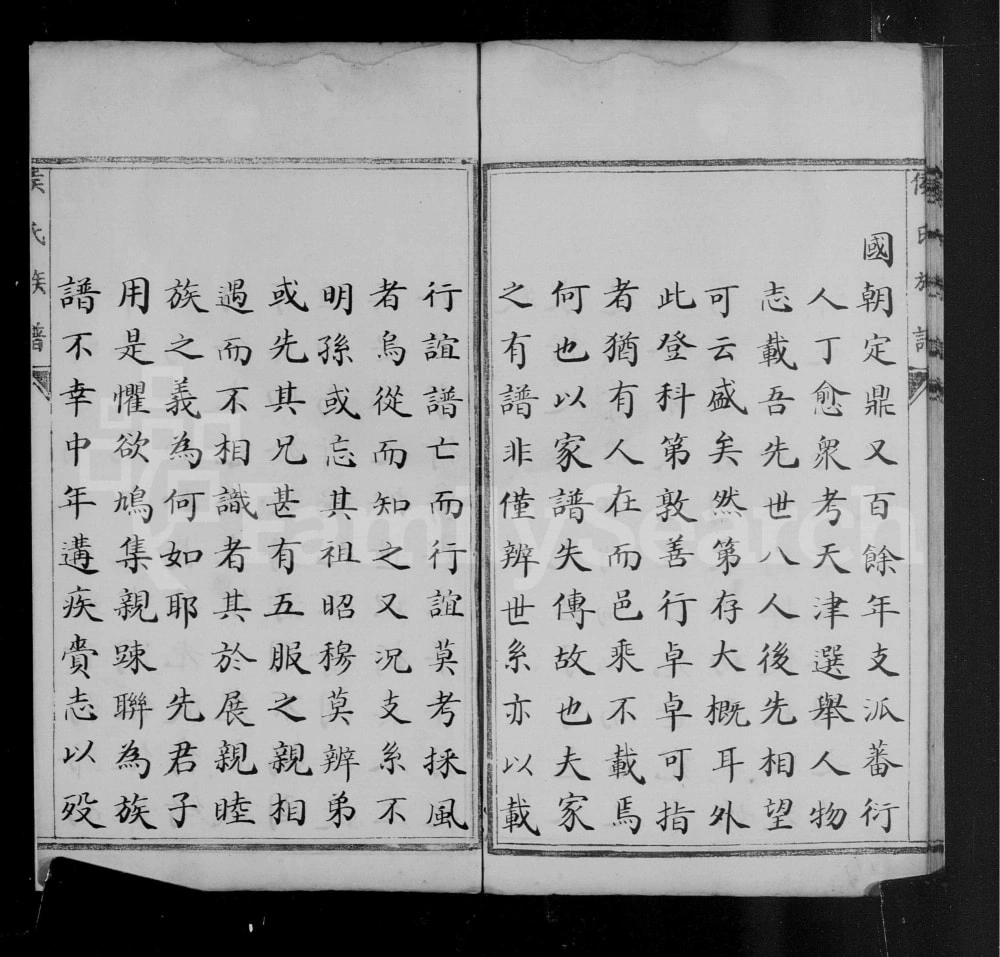 侯氏族譜
國朝定鼎又百餘年支派蕃衍
人丁愈衆考天津選舉人物
志載吾先世八人後先相望
可云盛矣然第存大概耳外
此登科第敦善行卓卓可指
者猶有人在而邑乘不載焉
何也以家譜失傳故也夫家
之有譜非僅辨世系亦以載
行誼譜亡而行誼莫考採風
者烏從而知之又況支系不
明孫或忘其祖昭穆莫辨弟
或先其兄甚有五服之親相
遇而不相識者其於展親睦
族之義為何如耶先君子
用是懼欲鳩集親踈聯為族
譜不幸中年遘疾賫志以殁
侯氏族譜
FamilySearch